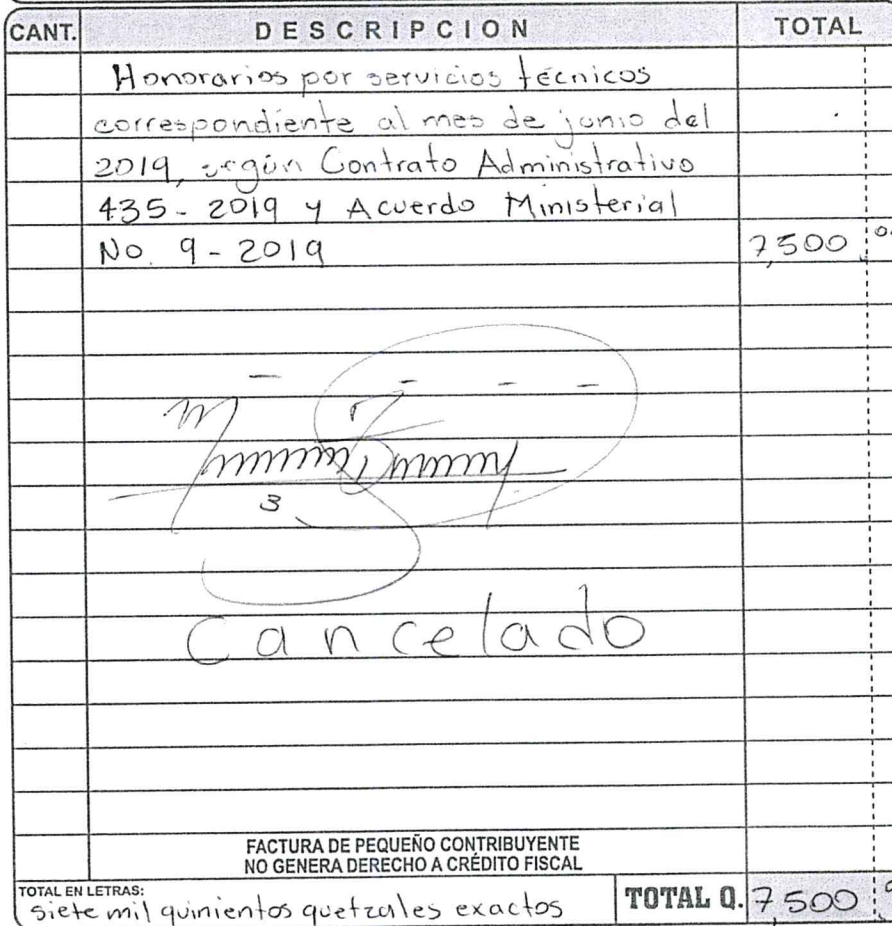 CANT. DESCRIPCION TOTAL
Honorarios por servicios técnicos
correspondiente al mes de junio del
2019, según Contrato Administrativo
435-2019 y Acuerdo Ministerial
No. 9-2019 7,500
Cancelado
FACTURA DE PEQUEÑO CONTRIBUYENTE
NO GENERA DERECHO A CRÉDITO FISCAL
TOTAL EN LETRAS:
siete mil quinientos quetzales exactos TOTAL Q. 7,500